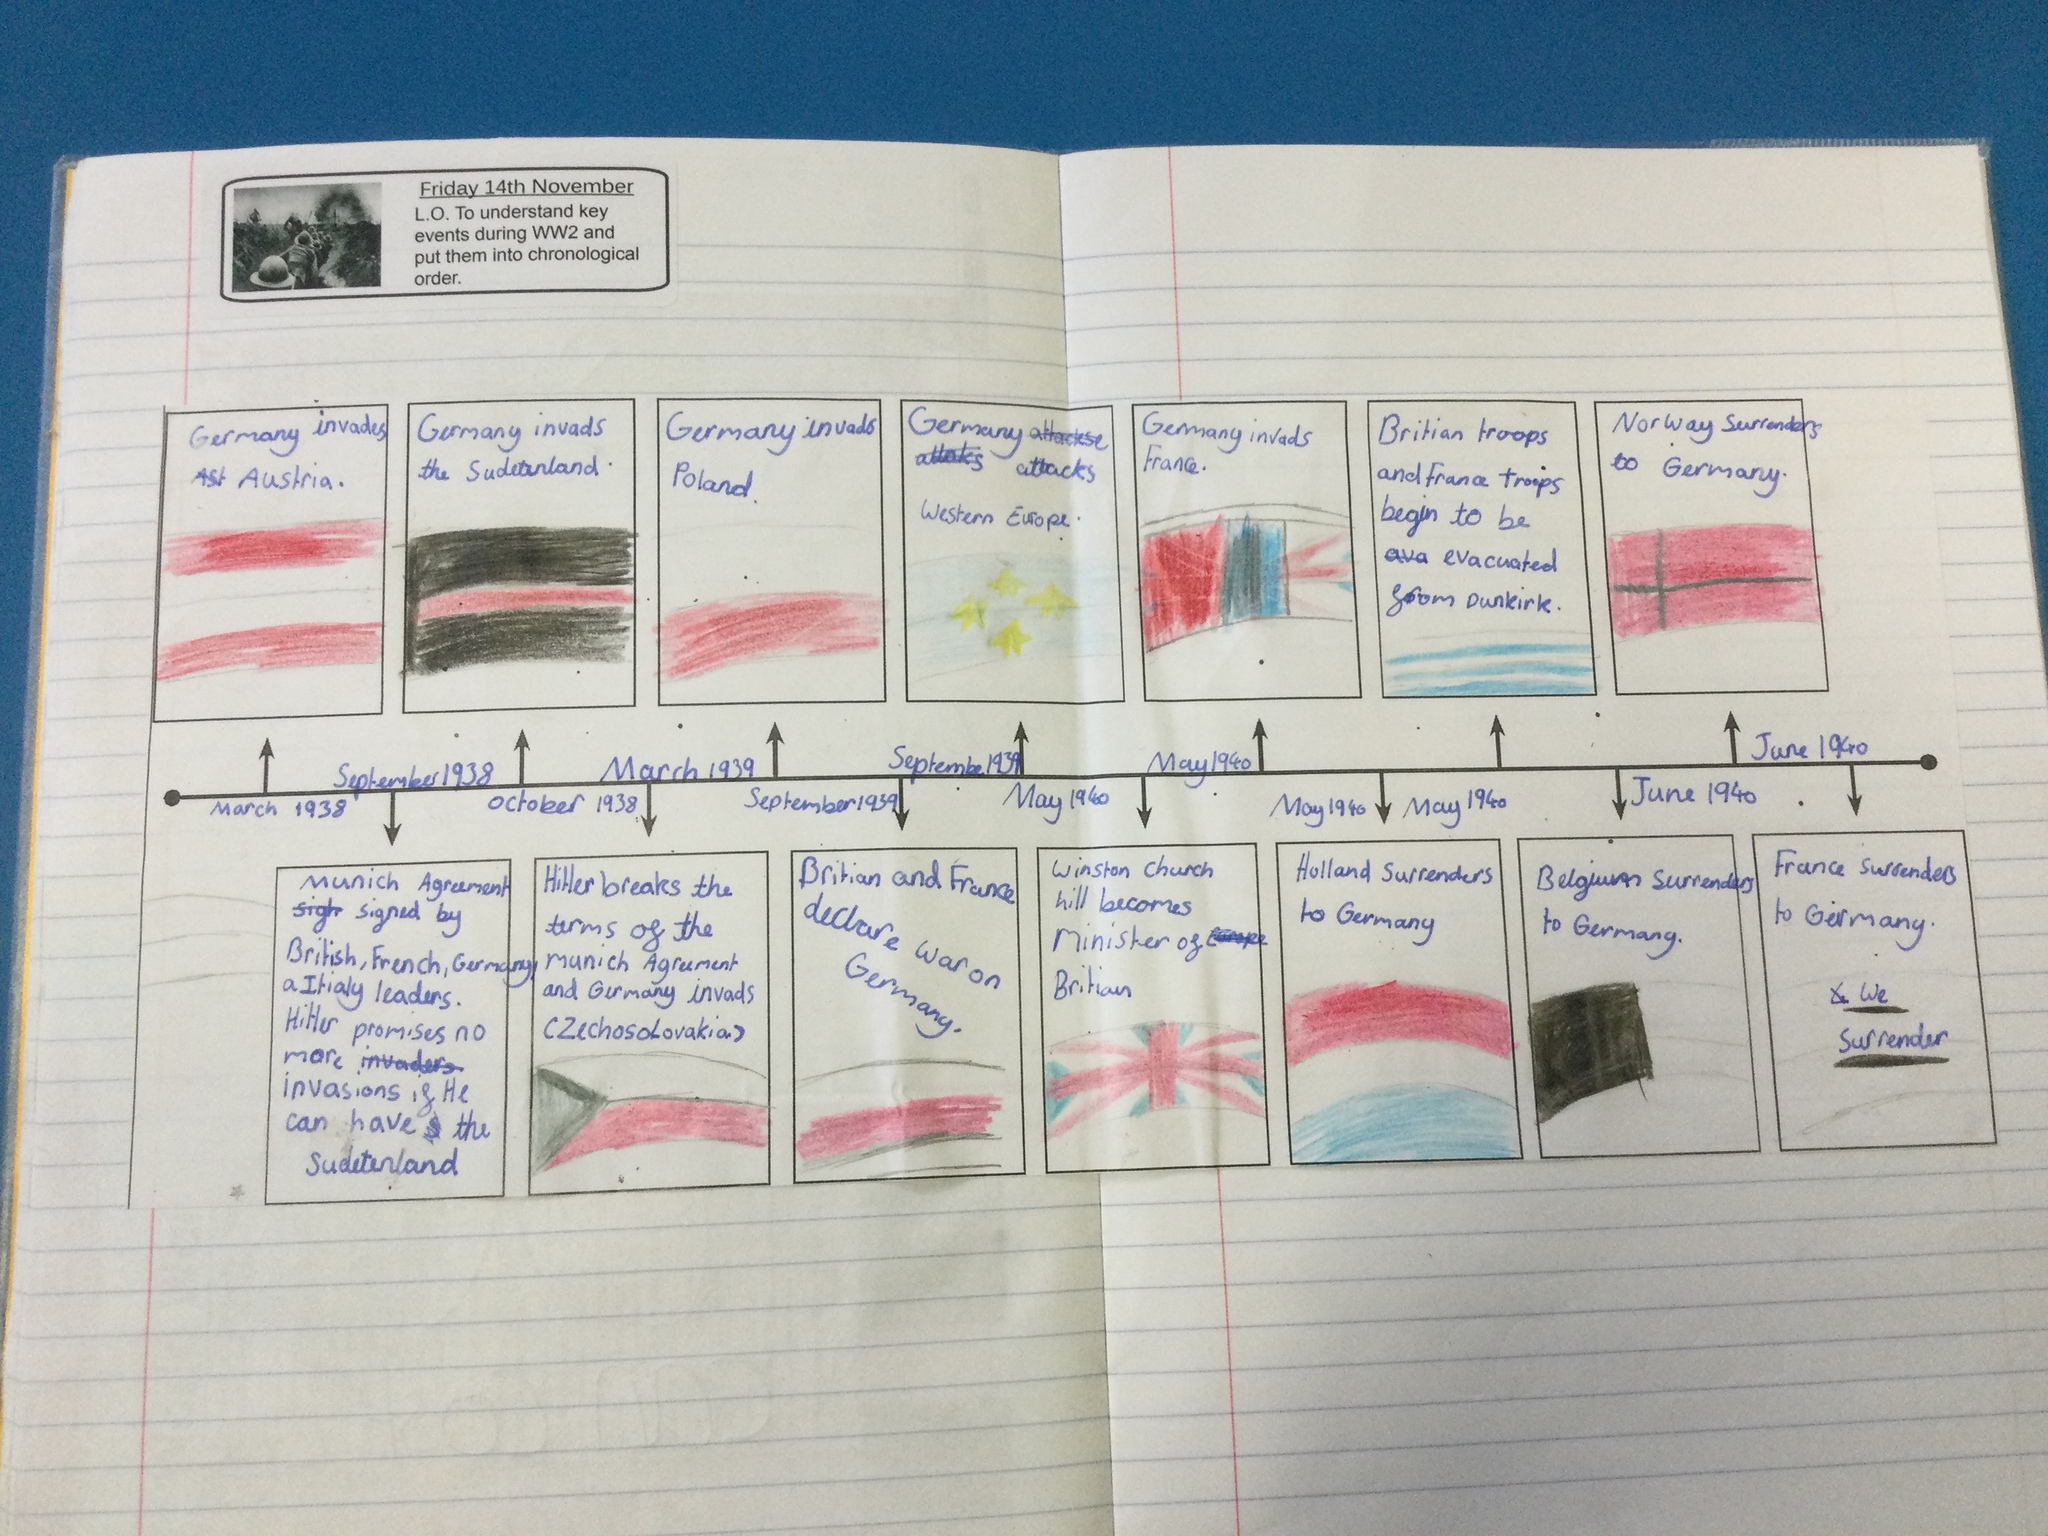 Friday 14th November
L.O. To understand key
events during WW2 and
put them into chronological
order.
Germany invades
Ast Austria.
Germany invads
the Sudetenland.
Germany invads
Poland.
Germany attackse
attaks attacks
Western Europe.
Germany invads
France.
Britian troops
and France troops
begin to be
ava evacuated
from Dunkirk.
Norway Surrenders
to Germany.
March 1938
September 1938
October 1938
March 1939
September 1939
September 1939
May 1940
May 1940
May 1940
May 1940
June 1940
June 1940
Munich Agreement
sigh signed by
British, French, Germany,
a Itialy leaders.
Hitler promises no
more invaders
invasions if He
can have the
Sudetenland
Hitler breaks the
terms of the
Munich Agreement
and Germany invads
(Czechosolovakia)
Britian and France
declare war on
Germany.
Winston Church
hill becomes
Minister of Europe
Britian
Holland Surrenders
to Germany
Belgium Surrenders
to Germany.
France surrenders
to Germany.
We
Surrender